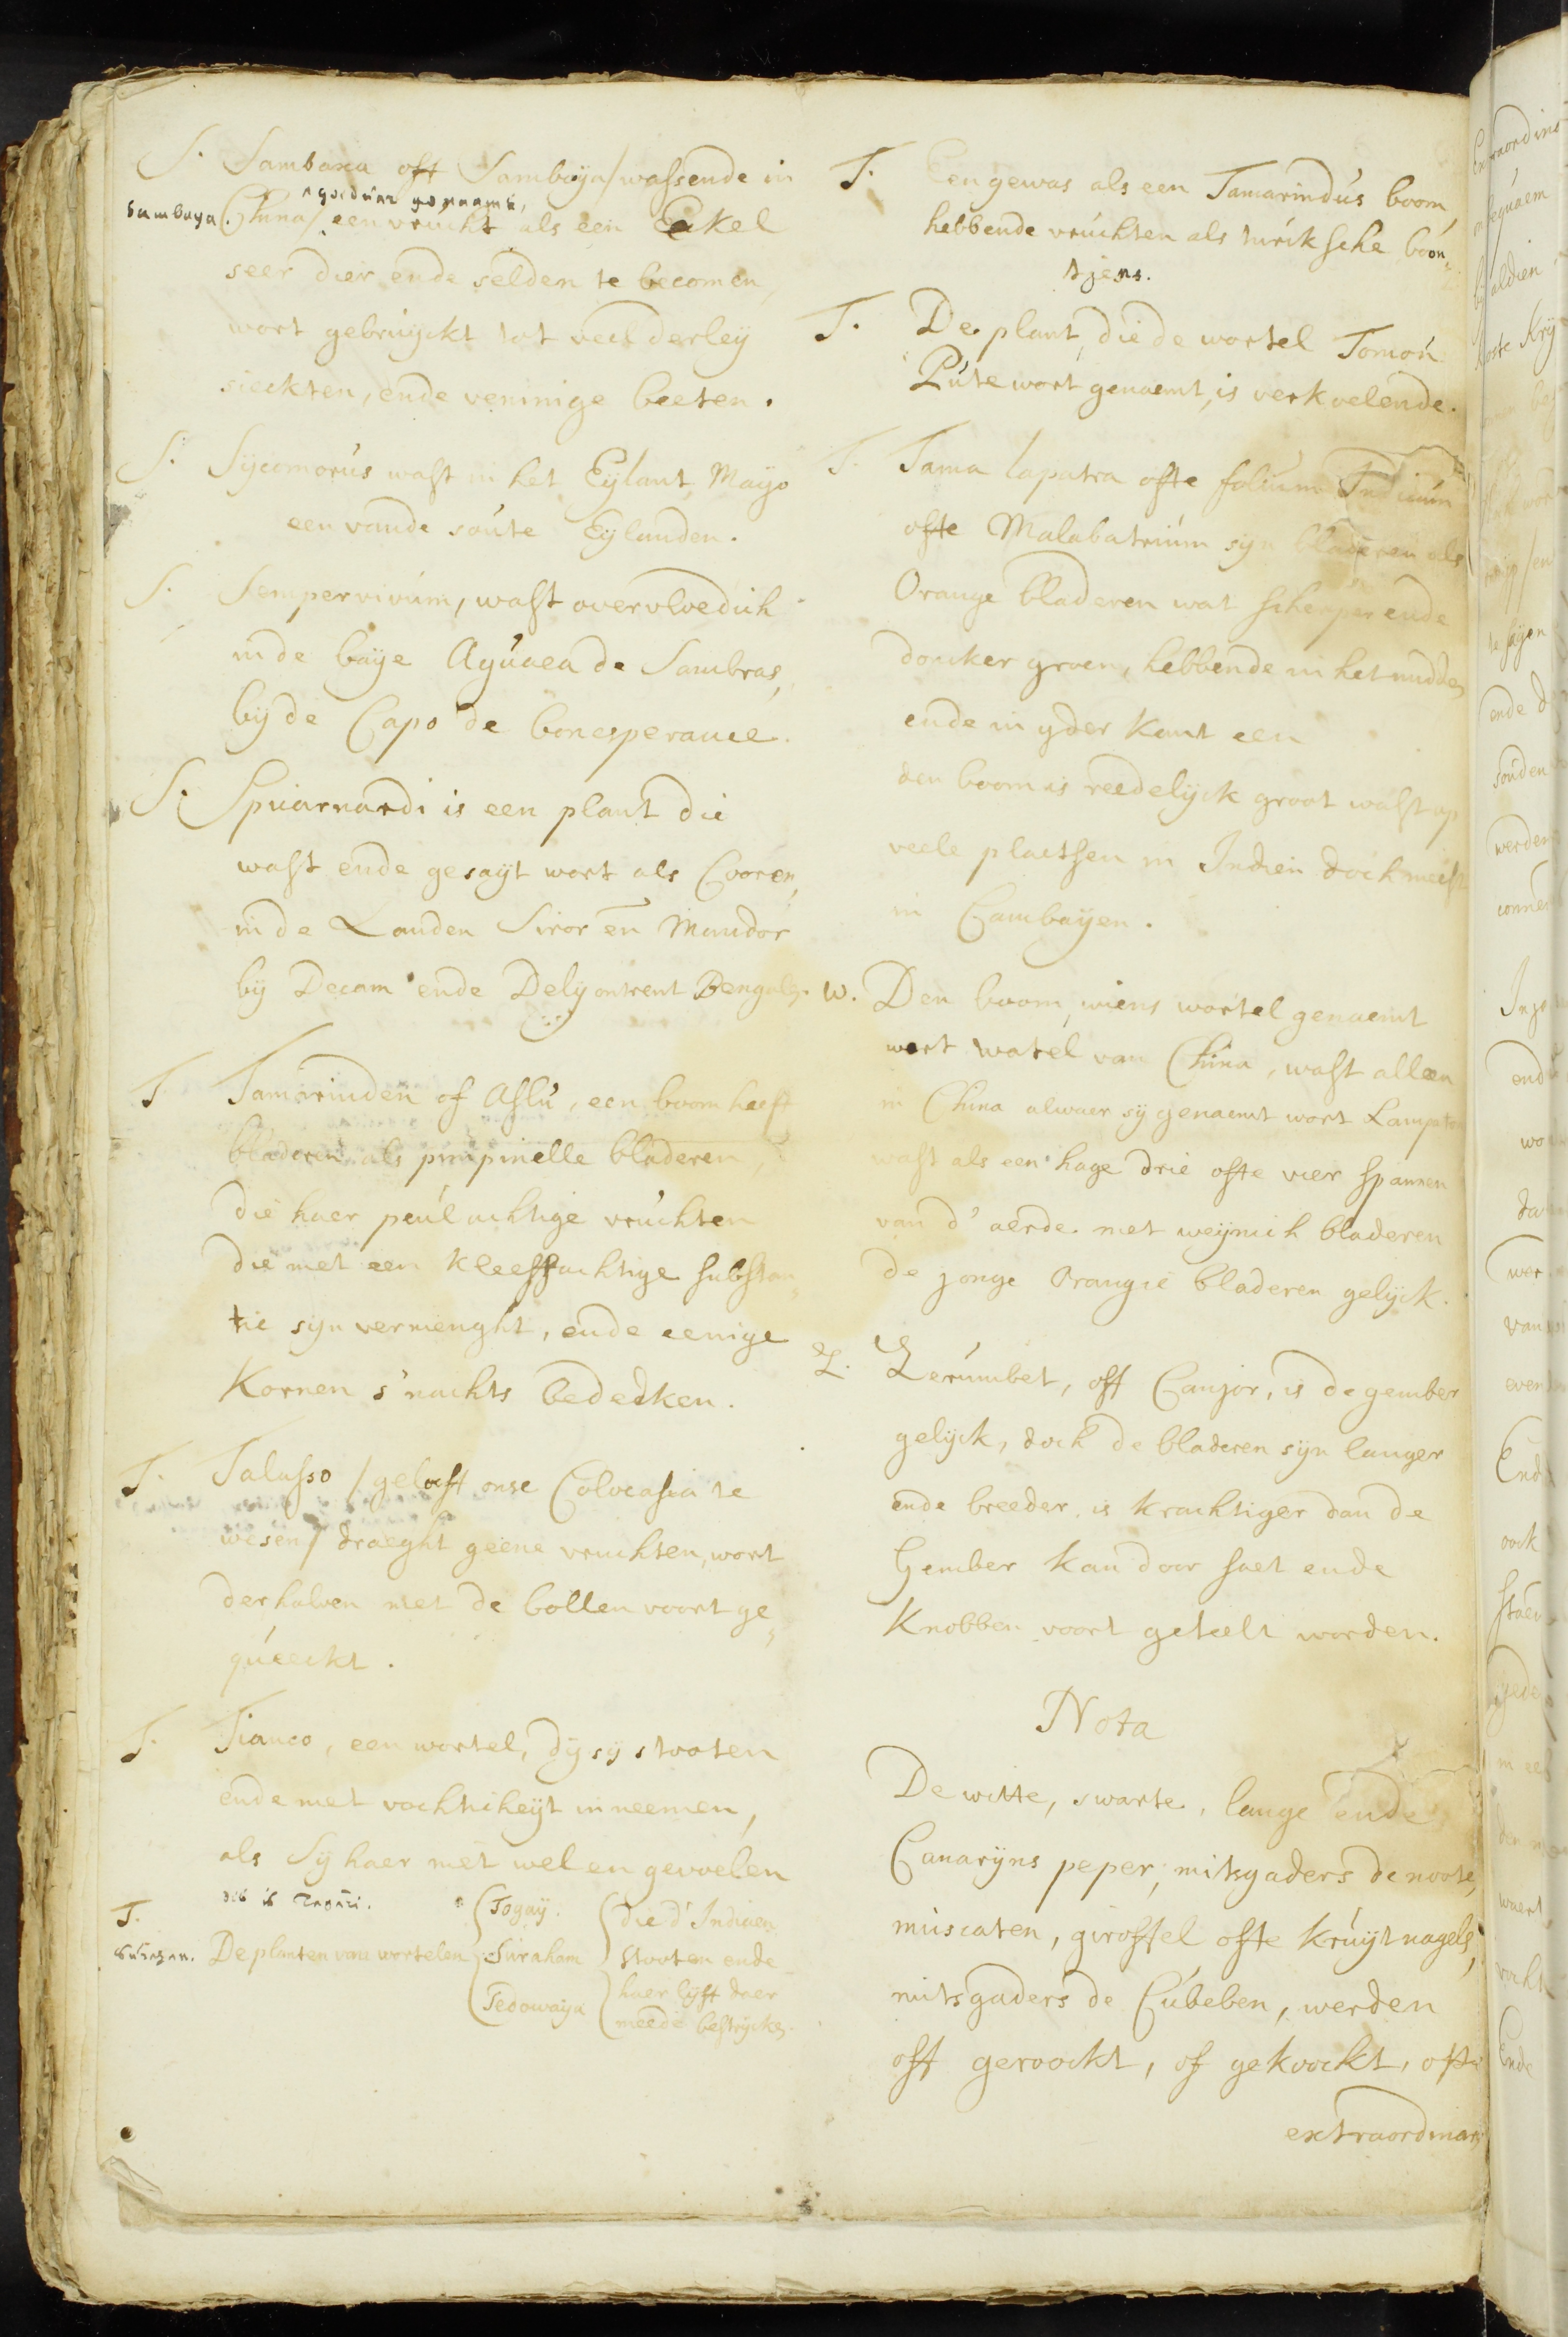 S. Sambaxa off Sambaya/wassende in
Sambaya. China/ een vrucht als een Eekel
seer dier ende selden te becomen,
wort gebruijckt tot veelderleij
sieckten, ende veninige beeten.
S. Sijcomorus wast in het Eijlant Maijo
een vande soute Eijlanden.
S. Sempervivum, wast overvloedich
in de baije Aguaea de Sambras,
bij de Capo de bonesperance.
S. Spicarnardi is een plant die
wast ende gesaijt wort als Cooren,
in de Landen Siror en Mandor
bij Decam ende Delij ontrent Bengalen.
T Tamarinden of Assu, een boom heeft
bladeren als pimpinelle bladeren,
die haer peulachtige vruchten
die met een kleeffachtige substan„
tie sijn vermenght, ende eenige
Kornen s'nachts bedecken.
T. Talasso /gelooft onse Colocasia te
wesen/ draeght geene vruchten, wort
derhalven met de bollen voort ge„
queeckt.
T. Tianco, een wortel, dij sij stooten
ende met vochticheijt inneemen,
als Sij haer niet wel en gevoelen
T. De planten van wortelen
Togaij.
Suraham
Tedowaija
die d'Indiaen
stooten ende
haer lijff daer
meede bestrijcken.
T. Een gewas als een Tamarindus boom,
hebbende vruchten als turcksche boon„
tjens.
T. De plant, die de wortel Tomon
Pute wort genaemt, is verkoelende.
T. Tama lapatra ofte folium Indicum
ofte Malabatrium sijn bladeren als
Orange bladeren wat scherper ende
doncker groen, hebbende in het midden
ende in ijder kant een
den boom is reedelijck groot wast op
veele plaetssen in Indien doch meest
in Cambaijen.
W. Den boom, wiens wortel genaemt
wort watel van China, wast alleen
in China alwaer sij genaemt wort Lampaton
wast als een hage drie ofte vier spannen
van d'aerde. met weijnich bladeren
de jonge Orangie bladeren gelijck.
Z. Zerumbet, off Canjor, is de gember
gelijck, doch de bladeren sijn langer
ende breeder, is krachtiger dan de
Gember kan door saet ende
Knobben voort geteelt worden.
Nota
De witte, swarte, lange ende
Canarijns peper, mitsgaders de noote,
muscaten, giroffel ofte kruijtnagels,
mitsgaders de Cubeben, werden
off geroockt, of gekoockt, ofte
extraordinarij